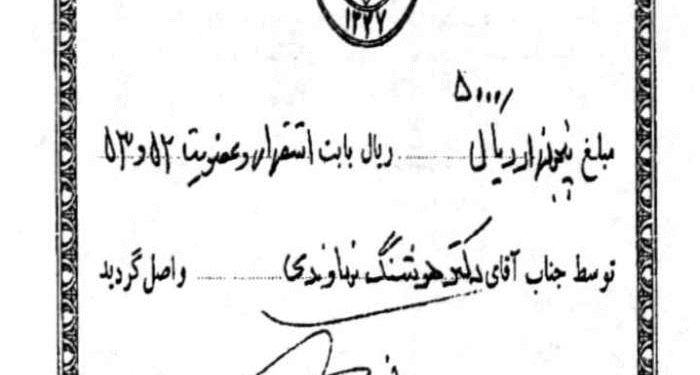 ۱۳۳۷
۵۰۰۰/
مبلغ پنجهزار ریال ........ ریال بابت استقرار و عضویت ۵۲ و ۵۳
توسط جناب آقای دکتر هوشنگ نهاوندی ........ واصل گردید